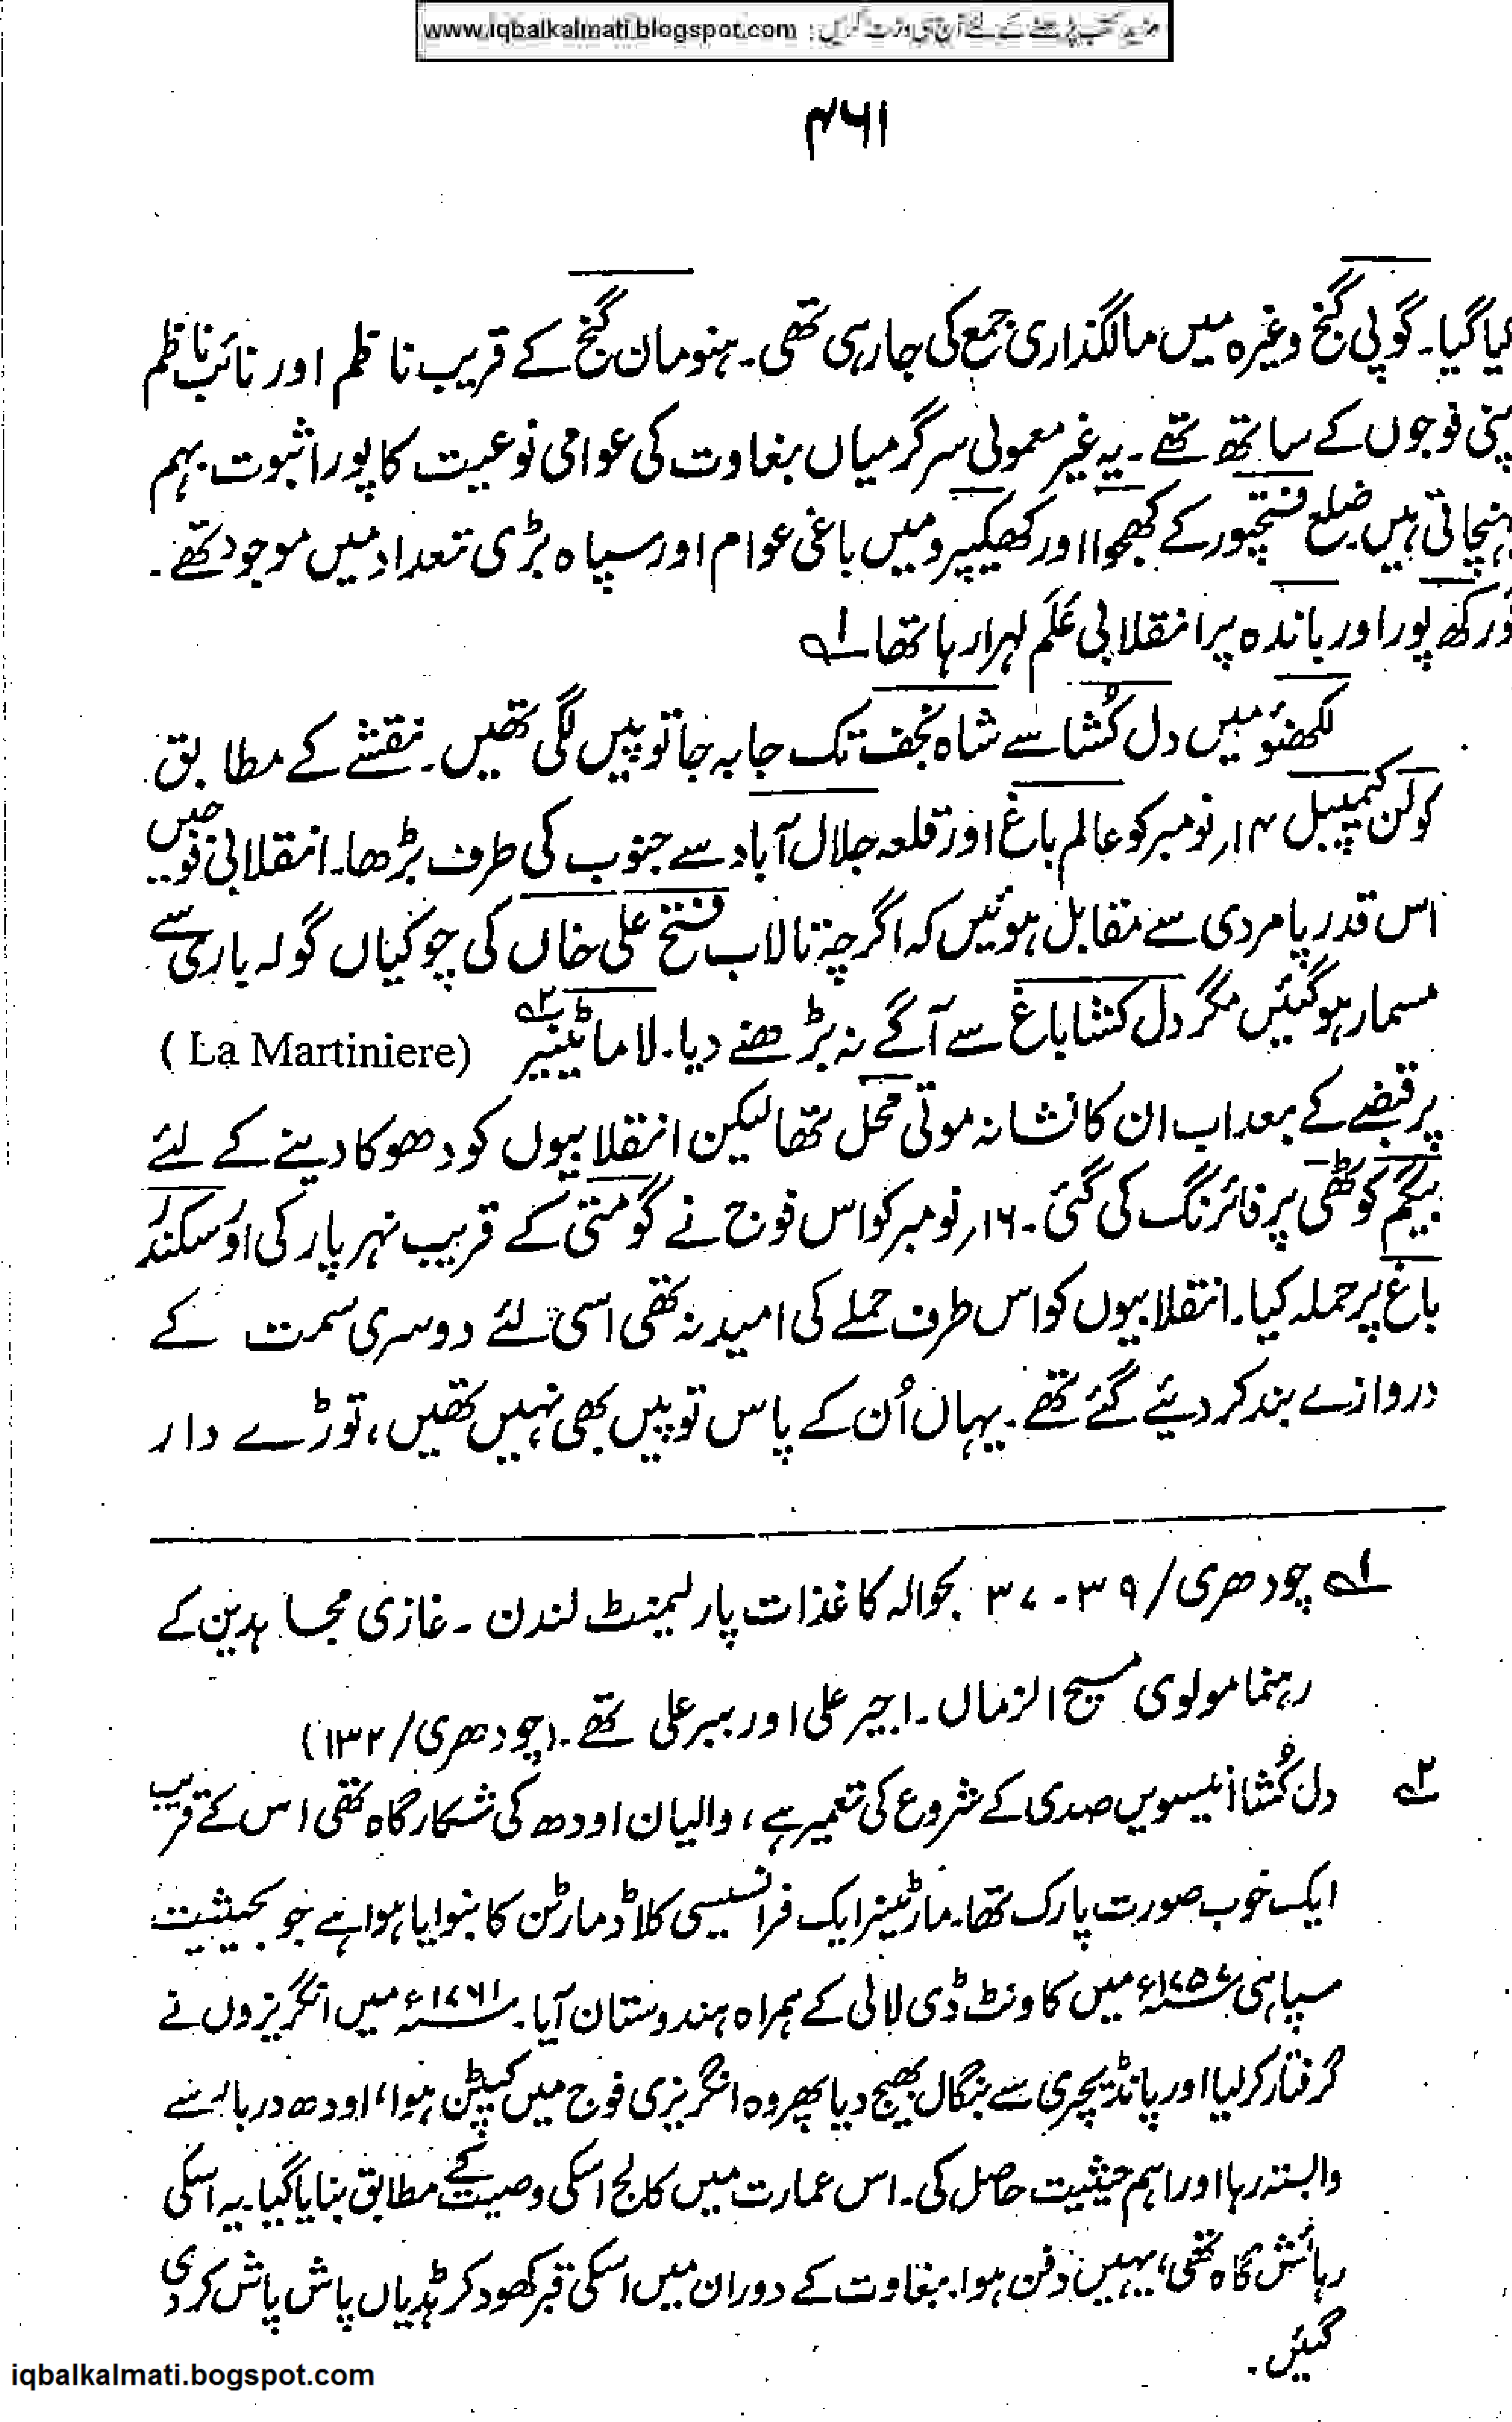 مزید کتب پڑھنے کے لئے آج ہی وزٹ کریں : www.iqbalkalmati.blogspot.com
۴۶۱
کیا گیا۔ گوپی گنج وغیرہ میں مالگذاری جمع کی جا رہی تھی۔ ہنومان گنج کے قریب ناظم اور نائب ناظم
پنی فوجوں کے ساتھ تھے۔ یہ غیر معمولی سرگرمیاں بغاوت کی عوامی نوعیت کا پورا ثبوت بہم
پہنچاتی ہیں ضلع فتحپور کے کھجوا اور میں باغی عوام اور سپاہ بڑی تعداد میں موجود تھے۔
گورکھ پور اور باندہ پر انقلابی عَلَم لہرا رہا تھا ۱؎
لکھنؤ میں دل کُشا سے شاہ نجف تک جا بہ جا توپیں لگی تھیں۔ نقشے کے مطابق
کولن کیمپبل ۱۴؍ نومبر کو عالم باغ اور قلعہ جلال آباد سے جنوب کی طرف بڑھا۔ انقلابی فوجیں
اس قدر پامردی سے مقابل ہوئیں کہ اگرچہ تالاب فتح علی خاں کی چوکیاں گولہ باری سے
مسمار ہو گئیں مگر دل کشا باغ سے آگے نہ بڑھنے دیا۔ ۲؎ لا ماٹینیر (La Martiniere)
پر قبضے کے بعد اب ان کا نشانہ موتی محل تھا لیکن انقلابیوں کو دھوکا دینے کے لئے
بیگم کوٹھی پر فائرنگ کی گئی۔ ۱۶؍ نومبر کو اس فوج نے گومتی کے قریب نہر پار کی اور سکندر
باغ پر حملہ کیا۔ انقلابیوں کو اس طرف حملے کی امید نہ تھی اسی لئے دوسری سمت کے
دروازے بند کر دیئے گئے تھے۔ یہاں اُن کے پاس توپیں بھی نہیں تھیں، توڑے دار
۱؎ چودھری / ۳۹ - ۳۷ بحوالہ کاغذات پارلیمنٹ لندن ۔ غازی مجاہدین کے
رہنما مولوی مسیح الزماں ۔ اجیر علی اور ببر علی تھے۔ (چودھری / ۱۳۲)
۲؎ دل کُشا انیسویں صدی کے شروع کی تعمیر ہے، والیان اودھ کی شکار گاہ تھی اس کے قریب
ایک خوب صورت پارک تھا۔ مارٹینر ایک فرانسیسی کلاڈ مارٹن کا بنوایا ہوا ہے جو بحیثیت
سپاہی ۱۷۵۷ء میں کاونٹ ڈی لالی کے ہمراہ ہندوستان آیا۔ ۱۷۶۱ء میں انگریزوں نے
گرفتار کر لیا اور پانڈیچری سے بنگال بھیج دیا پھر وہ انگریزی فوج میں کیپٹن ہوا، اودھ دربار سے
وابستہ رہا اور اہم حیثیت حاصل کی۔ اس عمارت میں کالج اسکی وصیت کے مطابق بنایا گیا۔ یہ اسکی
رہائش گاہ تھی، یہیں دفن ہوا۔ بغاوت کے دوران میں اسکی قبر کھود کر ہڈیاں پاش پاش کر دی
گئیں۔
iqbalkalmati.bogspot.com